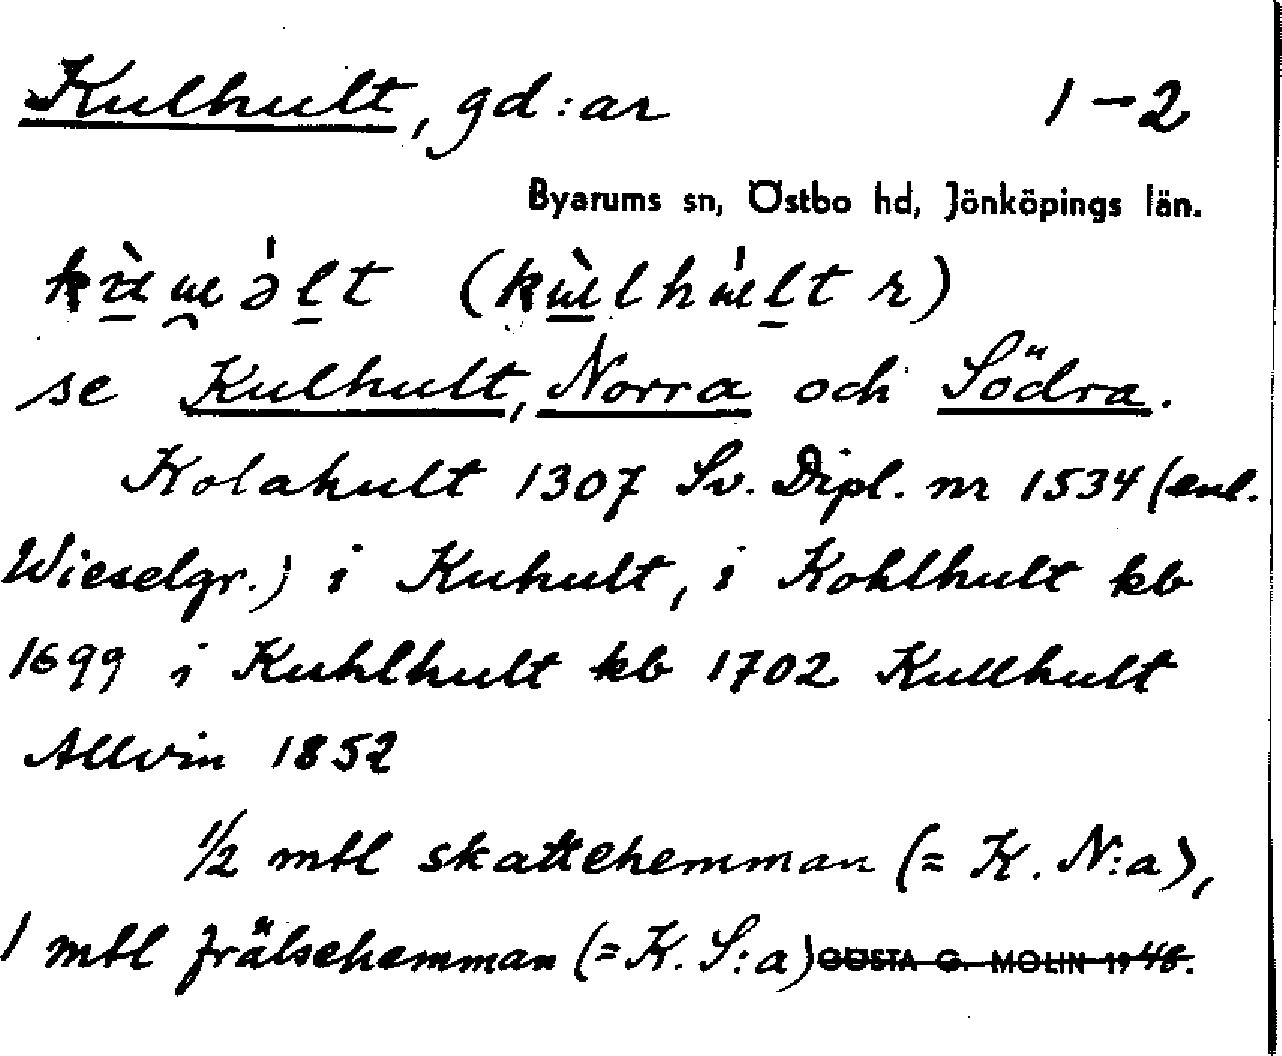 Kulhult, gd:ar 1-2
Byarums sn, Östbo hd, Jönköpings län.
se Kulhult, Norra och Södra.
Kolahult 1307 Sv. Dipl. nr 1534 (enl.
Wieselgr.) i Kuhult, i Kohlhult kb
1699 i Kuhlhult kb 1702 Kullhult
Allvin 1852
1/2 mtl skattehemman (= K. N:a),
1 mtl frälsehemman (= K. S:a) GÖSTA G. MOLIN 1948.